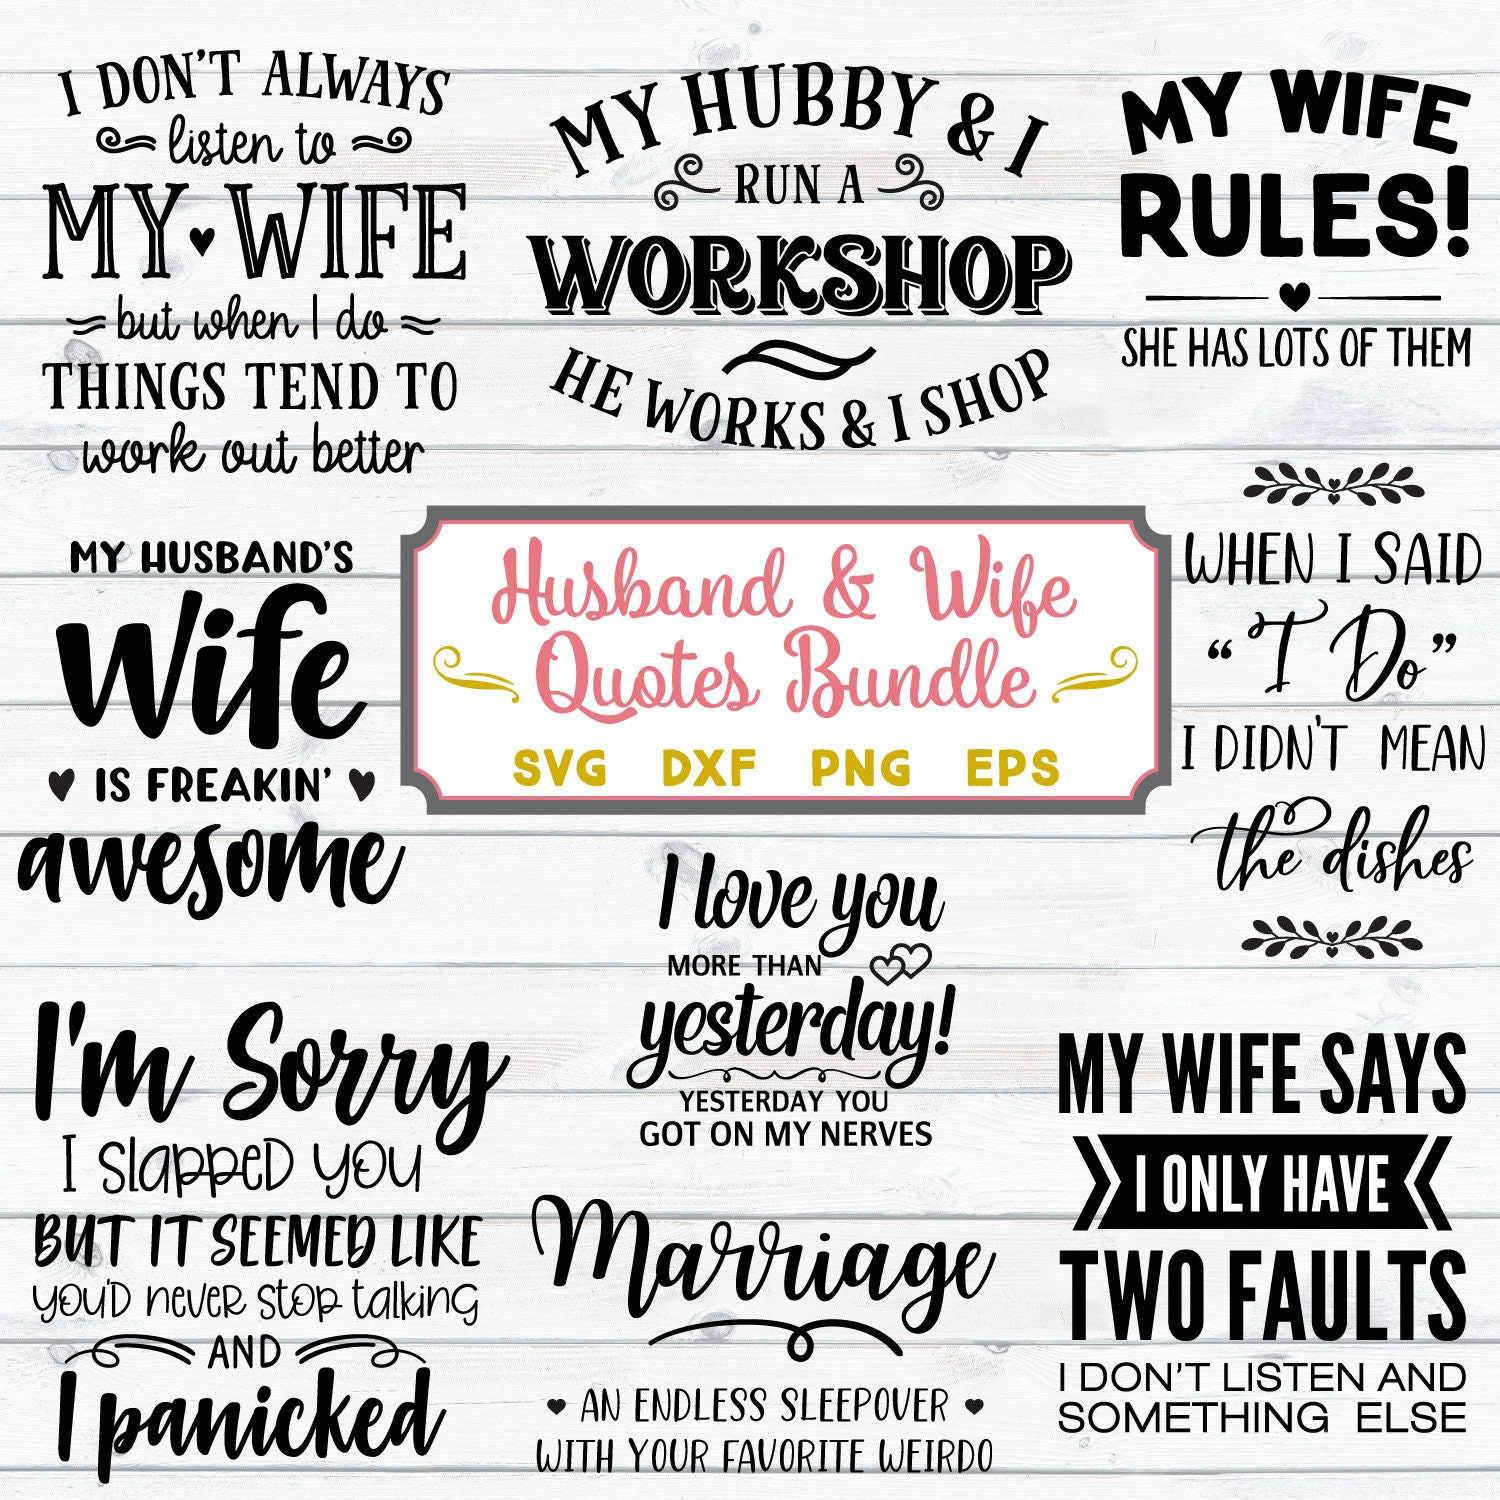 I DON'T ALWAYS
listen to
MY WIFE
but when I do
THINGS TEND TO
work out better
MY HUBBY & I
RUN A
WORKSHOP
HE WORKS & I SHOP
MY WIFE
RULES!
SHE HAS LOTS OF THEM
MY HUSBAND'S
Wife
IS FREAKIN'
awesome
Husband & Wife
Quotes Bundle
SVG DXF PNG EPS
WHEN I SAID
"I Do"
I DIDN'T MEAN
the dishes
I love you
MORE THAN
yesterday!
YESTERDAY YOU
GOT ON MY NERVES
I'm Sorry
I slapped you
BUT IT SEEMED LIKE
you'd never stop talking
AND
I panicked
Marriage
AN ENDLESS SLEEPOVER
WITH YOUR FAVORITE WEIRDO
MY WIFE SAYS
I ONLY HAVE
TWO FAULTS
I DON'T LISTEN AND
SOMETHING ELSE